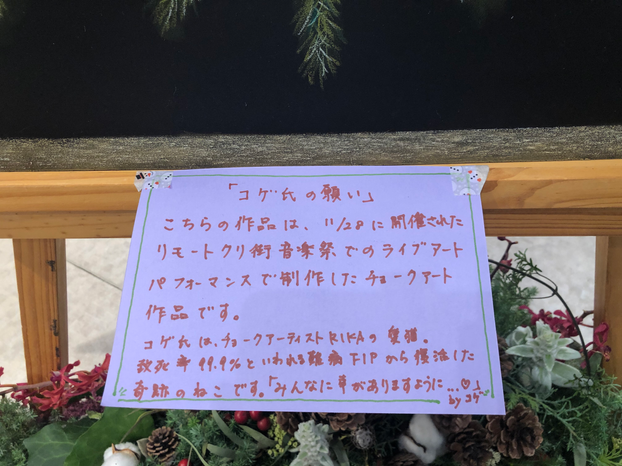 「コゲ氏の願い」
こちらの作品は、11/28に開催された
リモートクリ街音楽祭でのライブアート
パフォーマンスで制作したチョークアート
作品です。
コゲ氏は、チョークアーティストRIKAの愛猫。
致死率99.9%といわれる難病FIPから復活した
奇跡のねこです。「みんなに幸がありますように...♡」
byコゲ